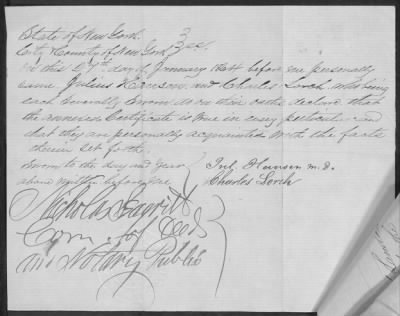 State of New York.
City & County of New York } ss.
On this day of January 1864 before me personally
came Julius Hansen and Charles Lorch who being
each severally sworn do on their oaths declare that
the annexed Certificate is true in every particular and
that they are personally acquainted with the facts
therein set forth.
Sworn to the day and year
above written before me
Jul. Hansen m.d.
Charles Lorch
Nicholas
Com. of Deeds
and Notary Public